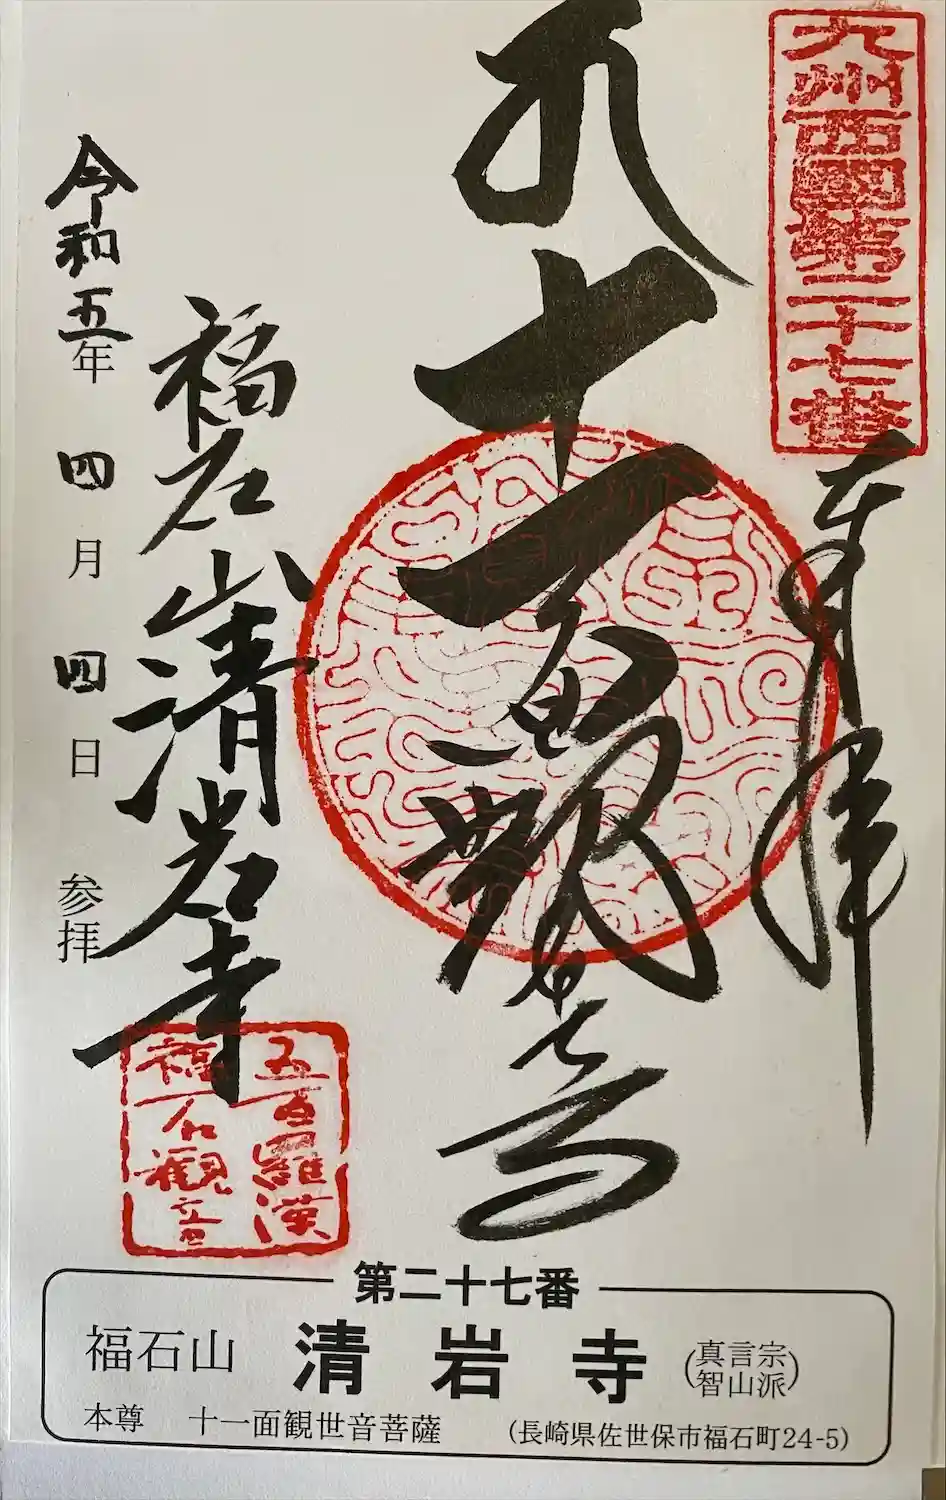 九州西國第二十七番
奉拝
十一面観世音
福石山清岩寺
五百羅漢
福石観音
令和五年四月四日参拝
第二十七番
福石山 清岩寺 (真言宗智山派)
本尊 十一面観世音菩薩 (長崎県佐世保市福石町24-5)